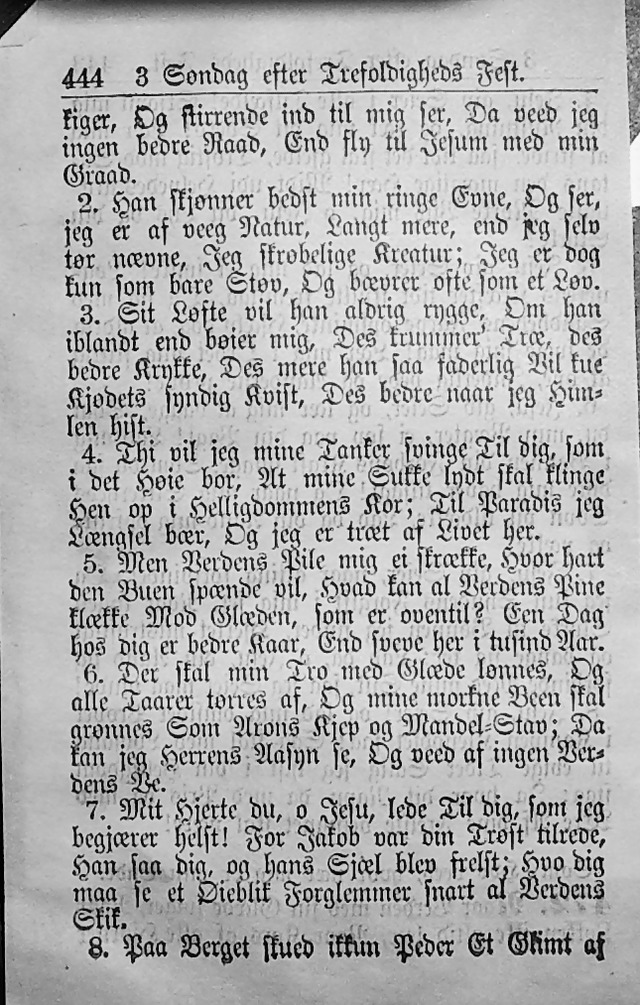 444 3 Søndag efter Trefoldigheds Fest.
kiger, Og stirrende ind til mig ser, Da veed jeg
ingen bedre Raad, End fly til Jesum med min
Graad.
2. Han skjønner bedst min ringe Evne, Og ser,
jeg er af veeg Natur, Langt mere, end jeg selv
tør nævne, Jeg skrøbelige Kreatur; Jeg er dog
kun som bare Støv, Og bævrer ofte som et Løv.
3. Sit Løfte vil han aldrig rygge, Om han
iblandt end bøier mig, Des krummer' Træ, des
bedre Krykke, Des mere han saa faderlig Vil kue
Kjødets syndig Kvist, Des bedre naar jeg Him-
len hist.
4. Thi vil jeg mine Tanker svinge Til dig, som
i det Høie bor, At mine Sukke lydt skal klinge
Hen op i Helligdommens Kor; Til Paradis jeg
Længsel bær, Og jeg er træt af Livet her.
5. Men Verdens Pile mig ei skrække, Hvor hart
den Buen spænde vil, Hvad kan al Verdens Pine
klække Mod Glæden, som er oventil? Een Dag
hos dig er bedre Kaar, End sveve her i tusind Aar.
6. Der skal min Tro med Glæde lønnes, Og
alle Taarer tørres af, Og mine morkne Been skal
grønnes Som Arons Kjep og Mandel-Stav; Da
kan jeg Herrens Aasyn se, Og veed af ingen Ver-
dens Ve.
7. Mit Hjerte du, o Jesu, lede Til dig, som jeg
begjærer helst! For Jakob var din Trøst tilrede,
Han saa dig, og hans Sjæl blev frelst; Hvo dig
maa se et Øieblik Forglemmer snart al Verdens
Skik.
8. Paa Berget skued ikkun Peder Et Glimt af